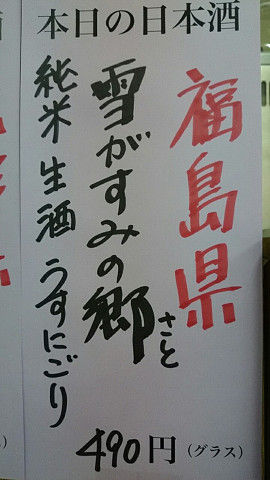 本日の日本酒
福島県
雪がすみの郷
さと
純米生酒うすにごり
490円(グラス)